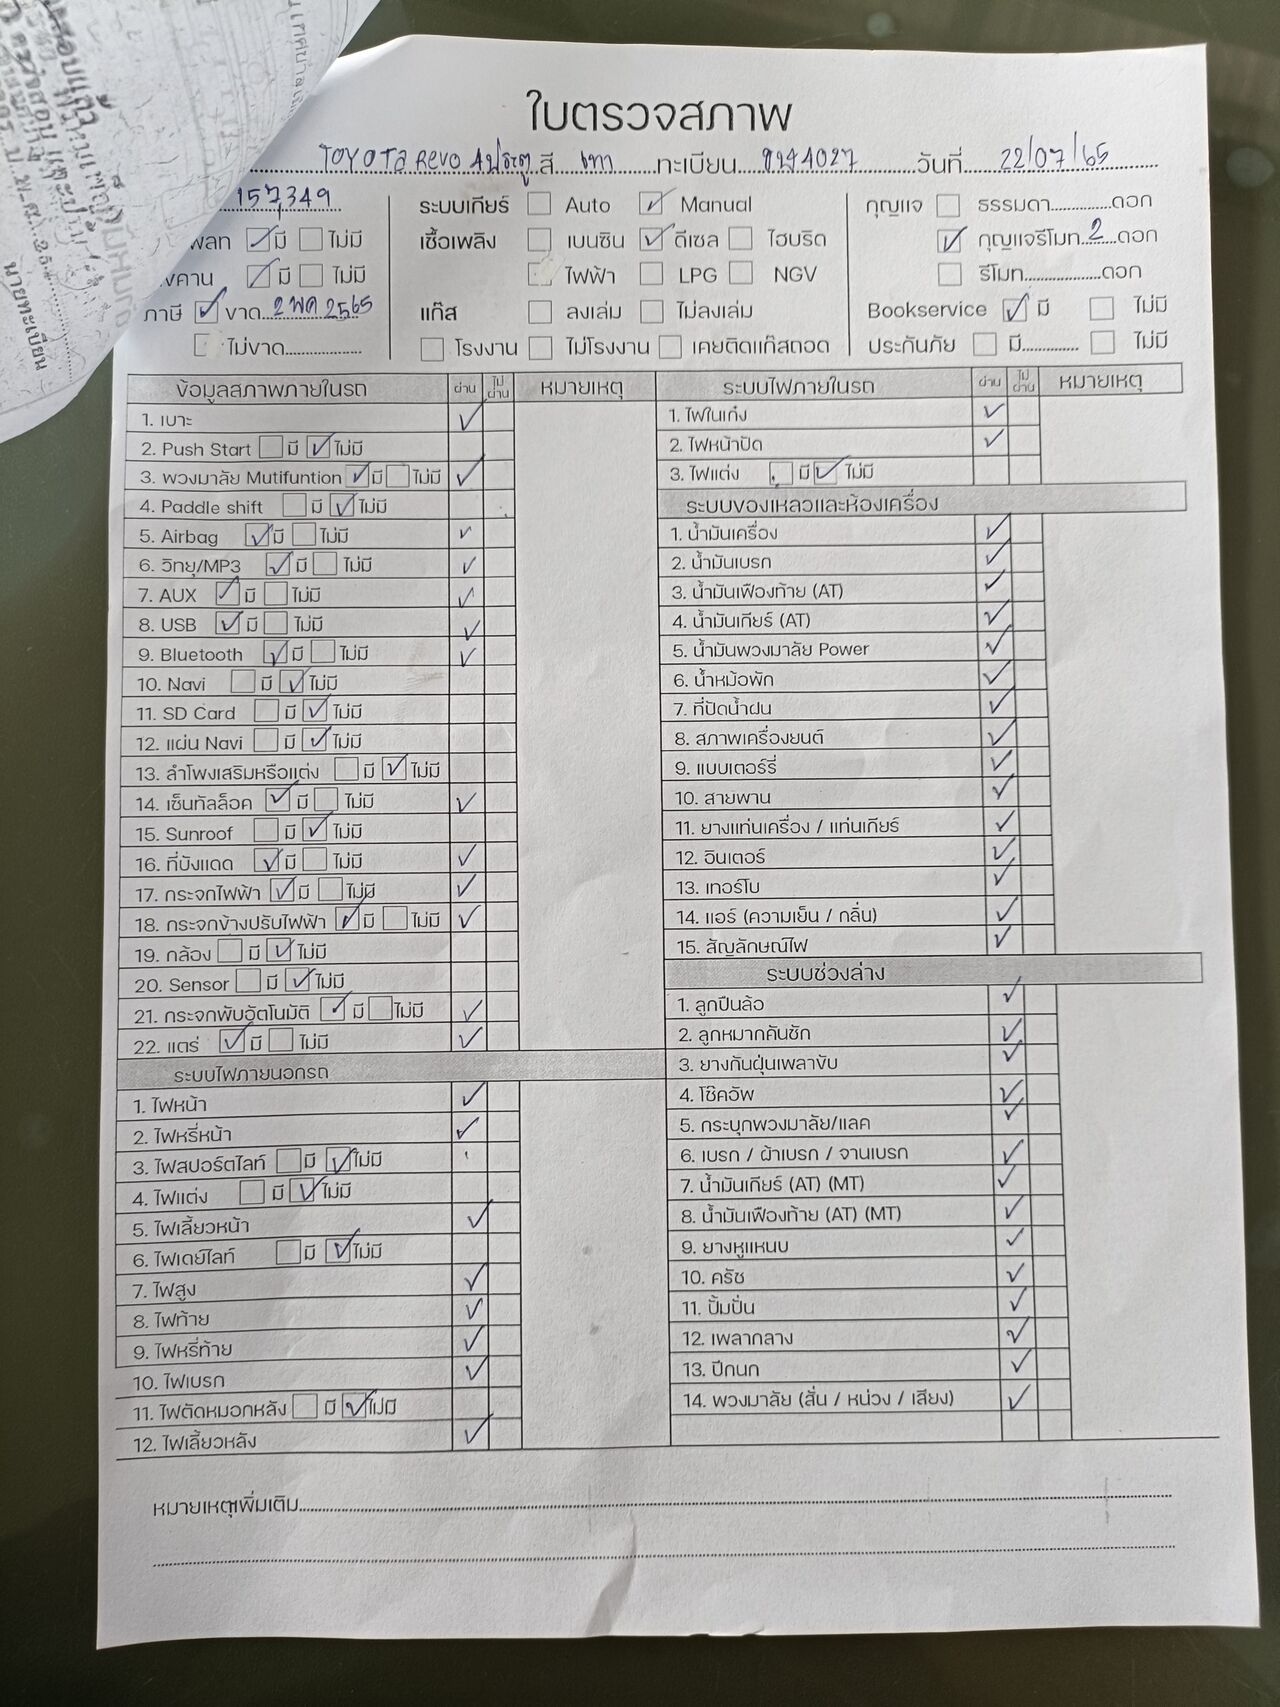 ใบตรวจสภาพ
TOYOTA Revo 4ประตู สี เทา ทะเบียน 4027 วันที่ 22/07/65
157,349
มี ไม่มี
มี ไม่มี
ภาษี ขาด 2 พค 2565
ไม่ขาด
ระบบเกียร์ Auto Manual
เชื้อเพลิง เบนซิน ดีเซล ไฮบริด
ไฟฟ้า LPG NGV
แก๊ส ลงเล่ม ไม่ลงเล่ม
โรงงาน ไม่โรงงาน เคยติดแก๊สถอด
กุญแจ ธรรมดา ดอก
กุญแจรีโมท 2 ดอก
รีโมท ดอก
Bookservice มี ไม่มี
ประกันภัย มี ไม่มี
ข้อมูลสภาพภายในรถ ผ่าน ไม่ผ่าน หมายเหตุ
1. เบาะ
2. Push Start มี ไม่มี
3. พวงมาลัย Mutifuntion มี ไม่มี
4. Paddle shift มี ไม่มี
5. Airbag มี ไม่มี
6. วิทยุ/MP3 มี ไม่มี
7. AUX มี ไม่มี
8. USB มี ไม่มี
9. Bluetooth มี ไม่มี
10. Navi มี ไม่มี
11. SD Card มี ไม่มี
12. แผ่น Navi มี ไม่มี
13. ลำโพงเสริมหรือแต่ง มี ไม่มี
14. เซ็นทัลล็อค มี ไม่มี
15. Sunroof มี ไม่มี
16. ที่บังแดด มี ไม่มี
17. กระจกไฟฟ้า มี ไม่มี
18. กระจกข้างปรับไฟฟ้า มี ไม่มี
19. กล้อง มี ไม่มี
20. Sensor มี ไม่มี
21. กระจกพับอัตโนมัติ มี ไม่มี
22. แตร่ มี ไม่มี
ระบบไฟภายนอกรถ
1. ไฟหน้า
2. ไฟหรี่หน้า
3. ไฟสปอร์ตไลท์ มี ไม่มี
4. ไฟแต่ง มี ไม่มี
5. ไฟเลี้ยวหน้า
6. ไฟเดย์ไลท์ มี ไม่มี
7. ไฟสูง
8. ไฟท้าย
9. ไฟหรี่ท้าย
10. ไฟเบรก
11. ไฟตัดหมอกหลัง มี ไม่มี
12. ไฟเลี้ยวหลัง
ระบบไฟภายในรถ ผ่าน ไม่ผ่าน หมายเหตุ
1. ไฟในเก๋ง
2. ไฟหน้าปัด
3. ไฟแต่ง มี ไม่มี
ระบบของเหลวและห้องเครื่อง
1. น้ำมันเครื่อง
2. น้ำมันเบรก
3. น้ำมันเฟืองท้าย (AT)
4. น้ำมันเกียร์ (AT)
5. น้ำมันพวงมาลัย Power
6. น้ำหม้อพัก
7. ที่ปัดน้ำฝน
8. สภาพเครื่องยนต์
9. แบบเตอร์รี่
10. สายพาน
11. ยางแท่นเครื่อง / แท่นเกียร์
12. อินเตอร์
13. เทอร์โบ
14. แอร์ (ความเย็น / กลิ่น)
15. สัญลักษณ์ไฟ
ระบบช่วงล่าง
1. ลูกปืนล้อ
2. ลูกหมากคันชัก
3. ยางกันฝุ่นเพลาขับ
4. โช๊คอัพ
5. กระบุกพวงมาลัย/แลค
6. เบรก / ผ้าเบรก / จานเบรก
7. น้ำมันเกียร์ (AT) (MT)
8. น้ำมันเฟืองท้าย (AT) (MT)
9. ยางหูแหนบ
10. ครัช
11. ปั้มปั่น
12. เพลากลาง
13. ปีกนก
14. พวงมาลัย (สั่น / หน่วง / เสียง)
หมายเหตุเพิ่มเติม
นายทะเบียน